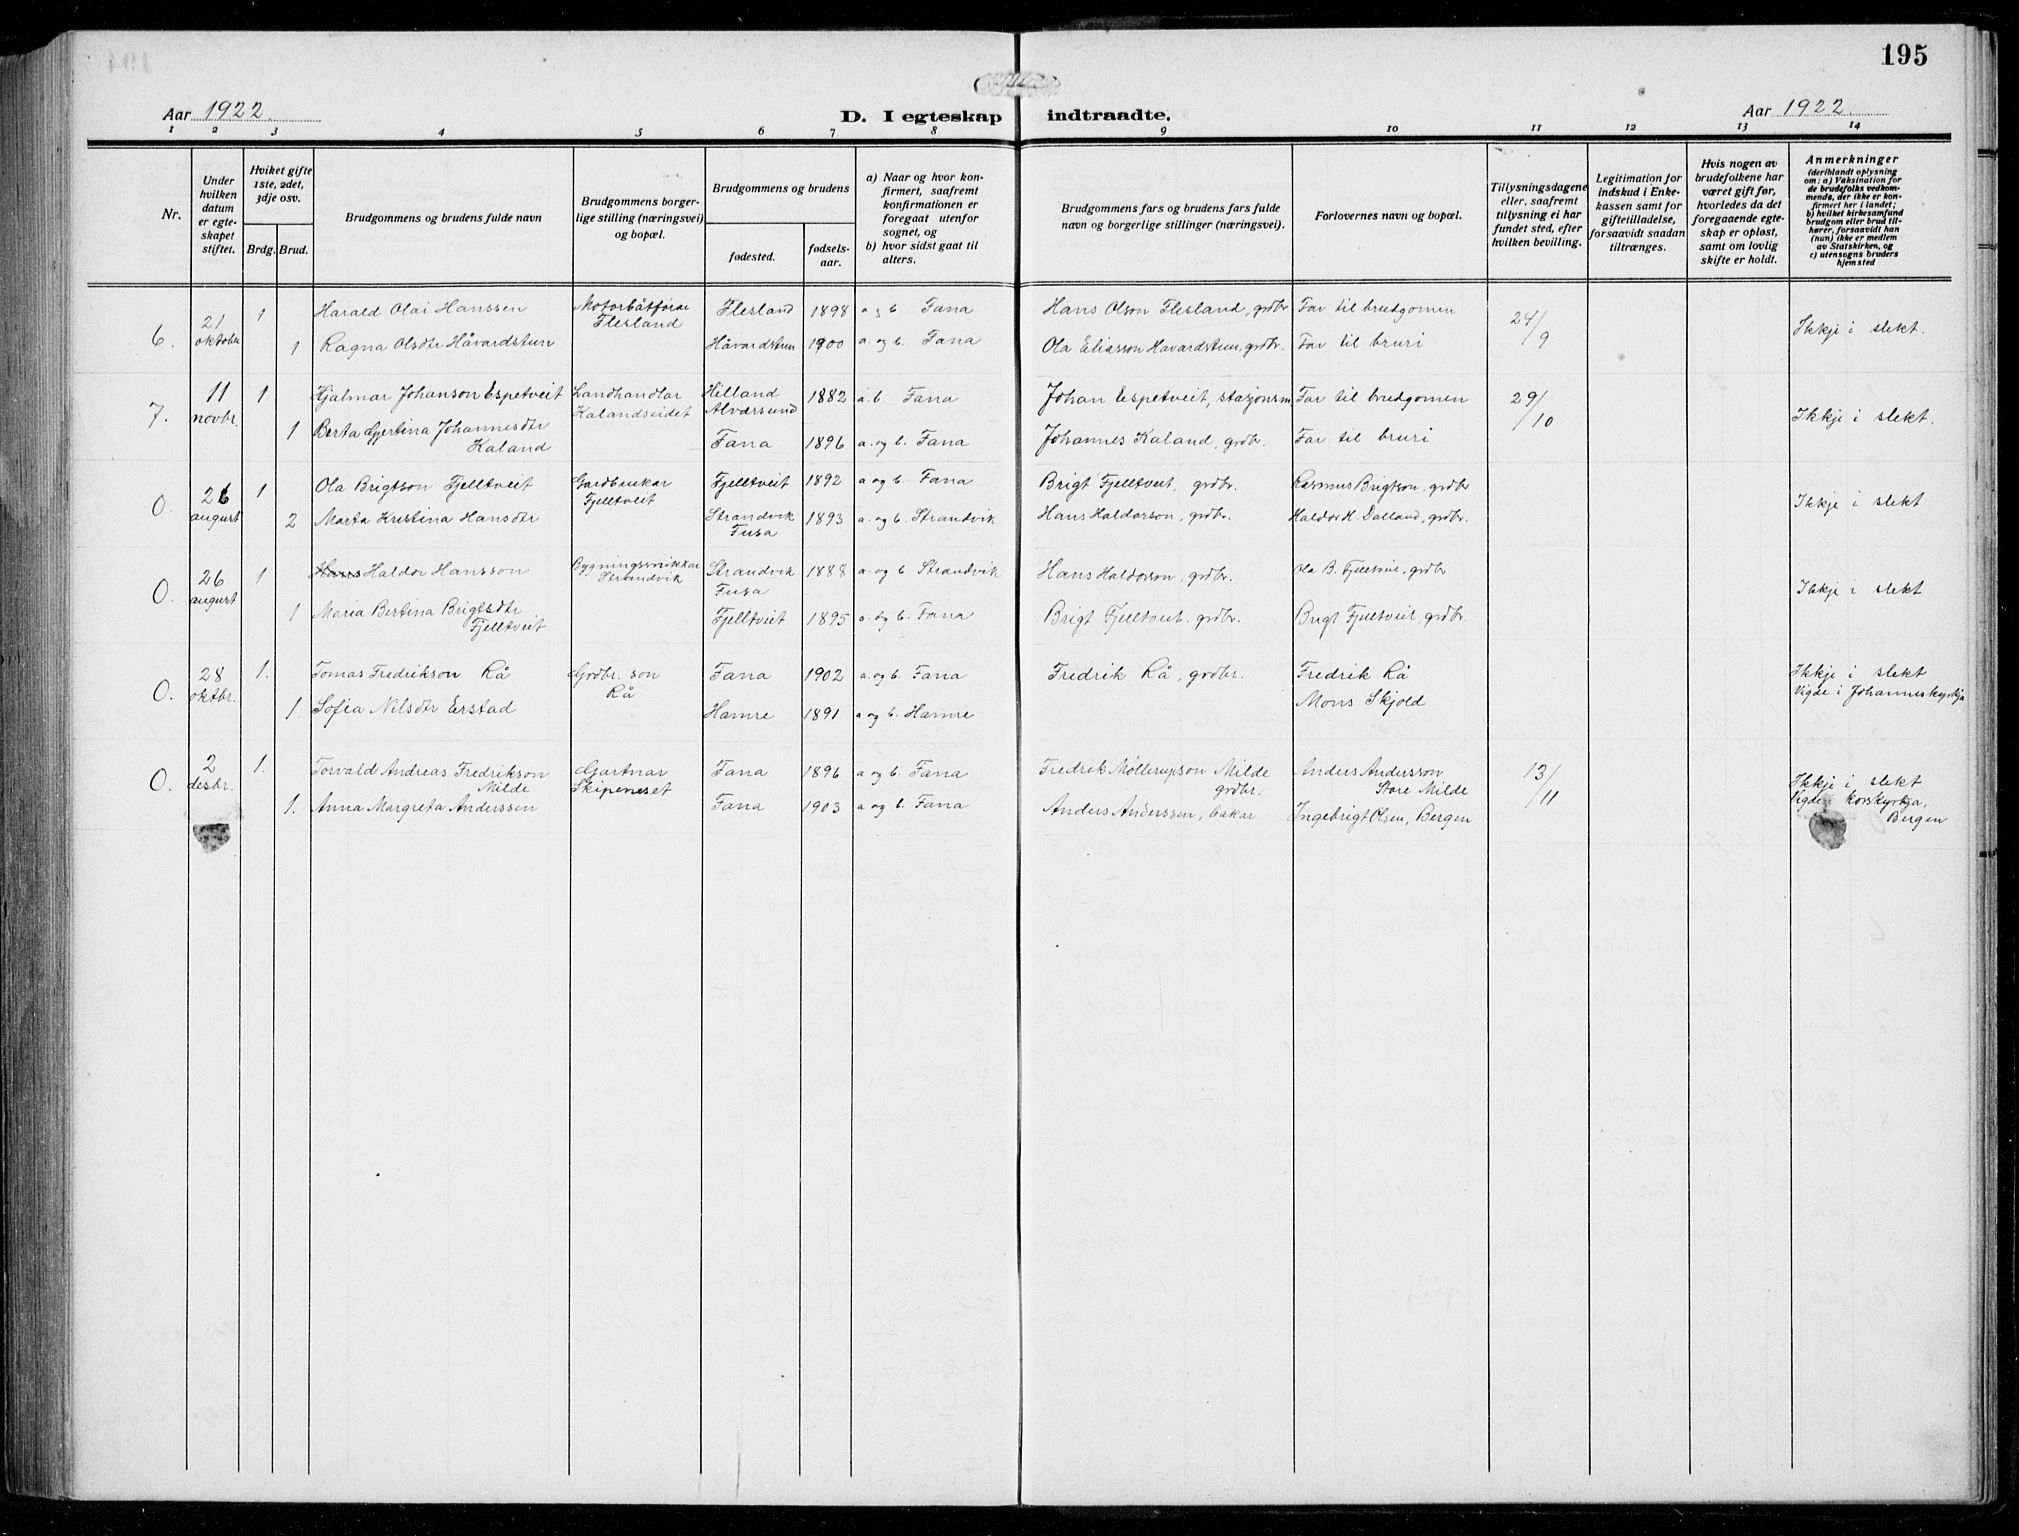 195
Aar 1922.
D. I egteskap indtraadte.
Aar 1922.
1 2 3 4 5 6 7 8 9 10 11 12 13 14
Nr.
Under hvilken datum er egteskapet stiftet.
Hvilket gifte 1ste, 2det, 3dje osv.
Brdg. Brud.
Brudgommens og brudens fulde navn
Brudgommens borgerlige stilling (næringsvei) og bopæl.
Brudgommens og brudens
fødested.
fødselsaar.
a) Naar og hvor konfirmert, saafremt konfirmationen er foregaat utenfor sognet, og
b) hvor sidst gaat til alters.
Brudgommens fars og brudens fars fulde navn og borgerlige stillinger (næringsvei).
Forlovernes navn og bopæl.
Tillysningsdagene eller, saafremt tillysning ei har fundet sted, efter hvilken bevilling.
Legitimation for indskud i Enkekassen samt for giftetilladelse, forsaavidt saadan tiltrænges.
Hvis nogen av brudefolkene har været gift før, hvorledes da det foregaaende egteskap er opløst, samt om lovlig skifte er holdt.
Anmerkninger
(deriblandt oplysning om: a) Vaksination for de brudefolks vedkommende, der ikke er konfirmert her i landet; b) hvilket kirkesamfund brudgom eller brud tilhører, forsaavidt han (hun) ikke er medlem av Statskirken, og c) utensogns bruders hjemsted
6. 21 oktober 1 Harald Olai Hanssen Motorbåtførar Flesland Flesland 1898 a og b Fana Hans Olson Flesland, grdbr Far til brudgomen 24/9 Ikkje i slekt.
1 Ragna Olsdtr Håvardstun Håvardstun 1900 a. og b. Fana Ola Eliasson Håvardstun, grdbr. Far til bruri
7. 11 novbr. 1 Hjalmar Johanson Espetveit Landhandlar Kalandseidet Hilland Alværsund 1882 a. b Fana Johan Espetveit, stasjonsm Far til brudgomen 29/10 Ikkje i slekt.
1 Berta Gjertina Johannesdtr Kaland Fana 1896 a. og b. Fana Johannes Kaland, grdbr. Far til bruri
0. 26 august 1 Ola Brigtson Fjelltveit Gardbrukar Fjelltveit Fjelltveit 1892 a og b. Fana Brigt Fjelltveit, grdbr. Rasmus Brigtson, grdbr Ikkje i slekt
2 Marta Kristina Hansdtr Strandvik Fusa 1893 a. og b. Strandvik Hans Haldorson, grdbr. Haldor H. Dalland, grdbr.
0. 26 august 1 Hans Haldor Hansson Bygningssnikkar Strandvik Strandvik Fusa 1888 a. og b Strandvik Hans Haldorson, grdbr. Ola B. Fjelltveit, grdbr Ikkje i slekt
1 Maria Bertina Brigtsdtr Fjelltveit Fjelltveit 1895 a. og b. Fana Brigt Fjelltveit. grdbr. Brigt Fjelltveit, grdbr.
0. 28 oktbr. 1. Tomas Fredrikson Rå Grdbr. son Rå Fana 1902 a. og b. Fana Fredrik Rå, grdbr. Fredrik Rå Ikkje i slekt
1. Sofia Nilsdtr Erstad Hamre 1891 a og b. Hamre Mons Skjold Vigde i Johanneskyrkja
0. 2 desbr. 1. Torvald Andreas Fredrikson Milde Gartnar Skipeneset Fana 1896 a og b. Fana Fredrik Møllerupson Milde grdbr. Anders Andersson Store Milde 13/11 Ikkje i slekt
1. Anna Margreta Anderssen Fana 1903 a og b. Fana Anders Anderssen, bakar Ingebrigt Olsen, Bergen Vigde i Korskyrkja, Bergen